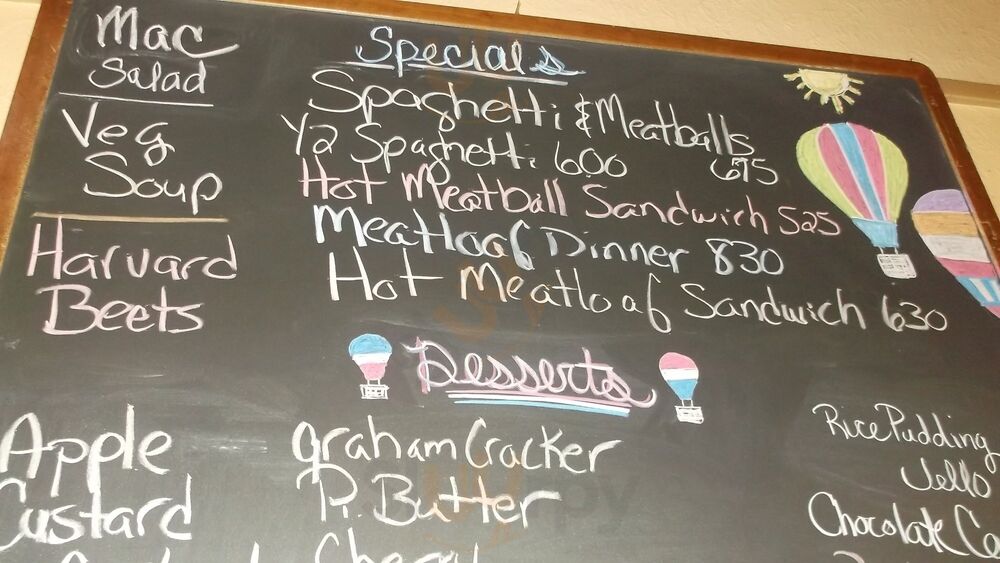 Mac
Salad
Veg
Soup
Harvard
Beets
Specials
Spaghetti & Meatballs
675
1/2 Spaghetti 600
Hot Meatball Sandwich 525
Meatloaf Dinner 830
Hot Meatloaf Sandwich 630
Desserts
Apple
Custard
Graham Cracker
P. Butter
Cherry
Rice Pudding
Jello
Chocolate